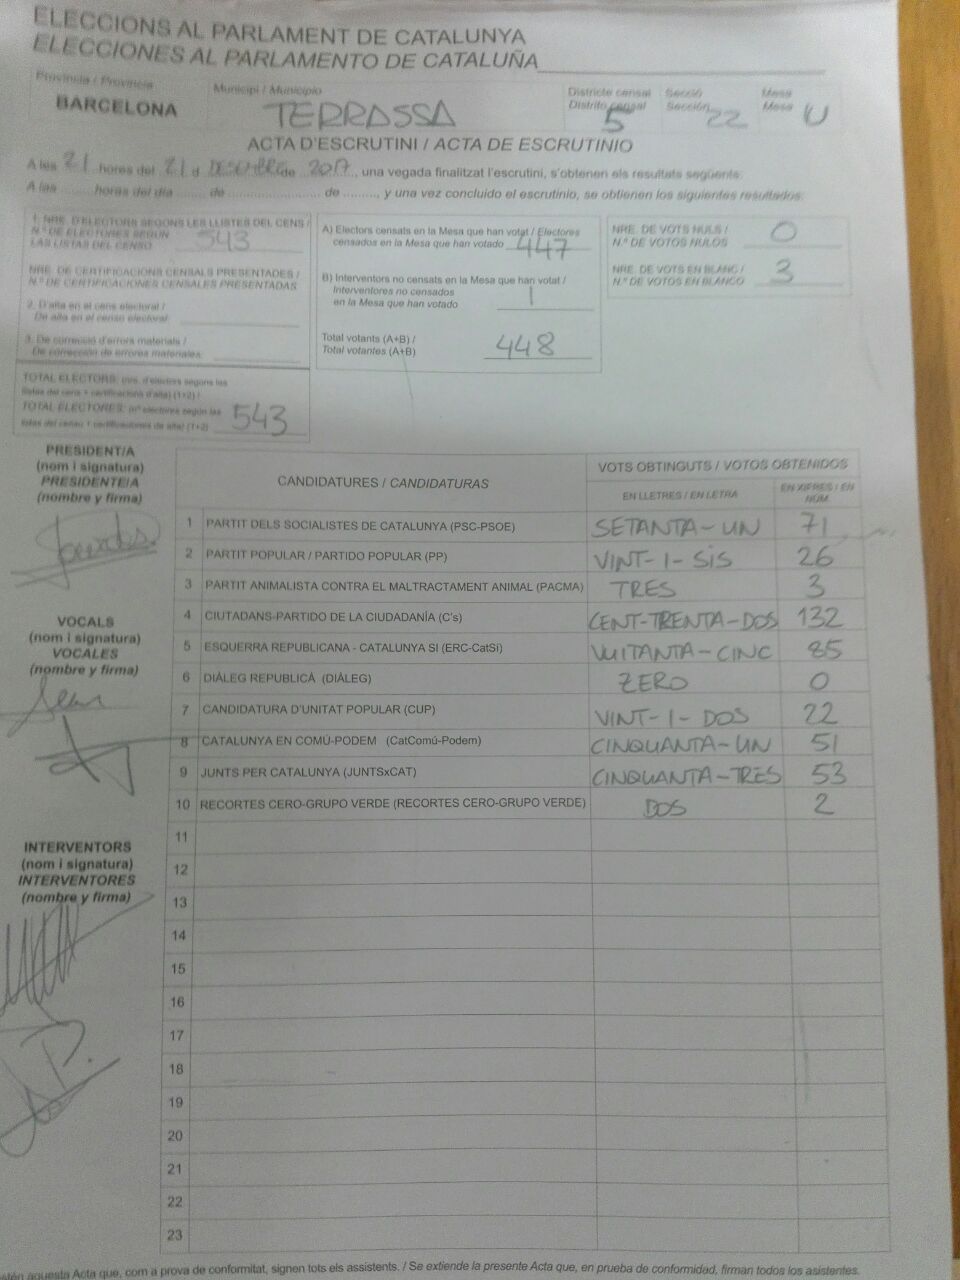 ELECCIONS AL PARLAMENT DE CATALUNYA
ELECCIONES AL PARLAMENTO DE CATALUÑA
Província / Provincia
BARCELONA
Municipi / Municipio
TERRASSA
Districte censal
Distrito censal
5
Secció
Sección
22
Mesa
Mesa
U
ACTA D'ESCRUTINI / ACTA DE ESCRUTINIO
A les 21 hores del 21 d DESEMBRE de 2017, una vegada finalitzat l'escrutini, s'obtenen els resultats següents:
A las ........ horas del día ........ de ........ de ........, y una vez concluido el escrutinio, se obtienen los siguientes resultados:
1. NRE. D'ELECTORS SEGONS LES LLISTES DEL CENS /
N.º DE ELECTORES SEGÚN
LAS LISTAS DEL CENSO 543
NRE. DE CERTIFICACIONS CENSALS PRESENTADES /
N.º DE CERTIFICACIONES CENSALES PRESENTADAS
2. D'alta en el cens electoral /
De alta en el censo electoral:
3. De correcció d'errors materials /
De corrección de errores materiales:
TOTAL ELECTORS: (nre. d'electors segons les
llistes del cens + certificacions d'alta) (1+2) /
TOTAL ELECTORES: (nº electores según las
listas del censo + certificaciones de alta) (1+2) 543
A) Electors censats en la Mesa que han votat / Electores
censados en la Mesa que han votado 447
B) Interventors no censats en la Mesa que han votat /
Interventores no censados
en la Mesa que han votado 1
Total votants (A+B) /
Total votantes (A+B) 448
NRE. DE VOTS NULS /
N.º DE VOTOS NULOS 0
NRE. DE VOTS EN BLANC /
N.º DE VOTOS EN BLANCO 3
PRESIDENT/A
(nom i signatura)
PRESIDENTE/A
(nombre y firma)
VOCALS
(nom i signatura)
VOCALES
(nombre y firma)
INTERVENTORS
(nom i signatura)
INTERVENTORES
(nombre y firma)
CANDIDATURES / CANDIDATURAS
VOTS OBTINGUTS / VOTOS OBTENIDOS
EN LLETRES / EN LETRA
EN XIFRES / EN NÚM.
1 PARTIT DELS SOCIALISTES DE CATALUNYA (PSC-PSOE) SETANTA-UN 71
2 PARTIT POPULAR / PARTIDO POPULAR (PP) VINT-I-SIS 26
3 PARTIT ANIMALISTA CONTRA EL MALTRACTAMENT ANIMAL (PACMA) TRES 3
4 CIUTADANS-PARTIDO DE LA CIUDADANÍA (C's) CENT-TRENTA-DOS 132
5 ESQUERRA REPUBLICANA - CATALUNYA SI (ERC-CatSí) VUITANTA-CINC 85
6 DIÀLEG REPUBLICÀ (DIÀLEG) ZERO 0
7 CANDIDATURA D'UNITAT POPULAR (CUP) VINT-I-DOS 22
8 CATALUNYA EN COMÚ-PODEM (CatComú-Podem) CINQUANTA-UN 51
9 JUNTS PER CATALUNYA (JUNTSxCAT) CINQUANTA-TRES 53
10 RECORTES CERO-GRUPO VERDE (RECORTES CERO-GRUPO VERDE) DOS 2
11
12
13
14
15
16
17
18
19
20
21
22
23
aquesta Acta que, com a prova de conformitat, signen tots els assistents. / Se extiende la presente Acta que, en prueba de conformidad, firman todos los asistentes.